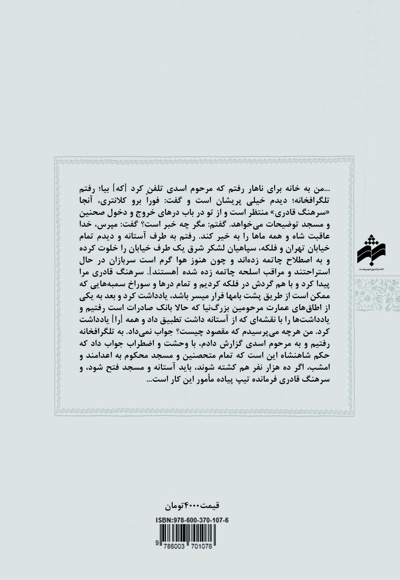 ...من به خانه برای ناهار رفتم که مرحوم اسدی تلفن کرد [که] بیا؛ رفتم
تلگرافخانه؛ دیدم خیلی پریشان است و گفت: فوراً برو کلانتری، آنجا
«سرهنگ قادری» منتظر است و از تو در باب درهای خروج و دخول صحنین
و مسجد توضیحات می‌خواهد. گفتم: مگر چه خبر است؟ گفت: مپرس، خدا
عاقبت شاه و همه ماها را به خیر کند. رفتم به طرف آستانه و دیدم تمام
خیابان تهران و فلکه، سپاهیان لشکر شرق یک طرف خیابان را خلوت کرده
و به اصطلاح چاتمه زده‌اند و چون هنوز هوا گرم است سربازان در حال
استراحتند و مراقب اسلحه چاتمه زده شده [هستند]. سرهنگ قادری مرا
پیدا کرد و با هم گردش در فلکه کردیم و تمام درها و سوراخ سمبه‌هایی که
ممکن است از طریق پشت بامها فرار میسر باشد، یادداشت کرد و بعد به یکی
از اطاق‌های عمارت مرحومین بزرگ‌نیا که حالا بانک صادرات است رفتیم و
یادداشت‌ها را با نقشه‌ای که از آستانه داشت تطبیق داد و همه [را] یادداشت
کرد. من هرچه می‌پرسیدم که مقصود چیست؟ جواب نمی‌داد. به تلگرافخانه
رفتیم و به مرحوم اسدی گزارش دادم، با وحشت و اضطراب جواب داد که
حکم شاهنشاه این است که تمام متحصنین و مسجد محکوم به اعدامند و
امشب، اگر ده هزار نفر هم کشته شوند، باید آستانه و مسجد فتح شود، و
سرهنگ قادری فرمانده تیپ پیاده مأمور این کار است...
قیمت ۴۰۰۰ تومان
ISBN:978-600-370-107-6
9 786003 701076